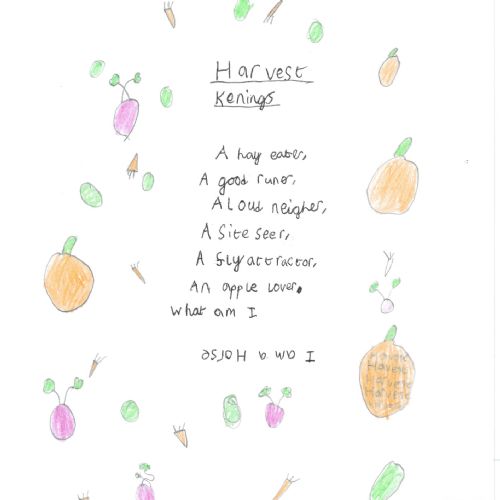 Harvest
Kenings
A hay eater,
A good runer,
A Loud neigher,
A Site seer,
A fly attractor,
An apple lover.
What am I
I am a Horse
Harvest
Harvest
Harvest
Harvest